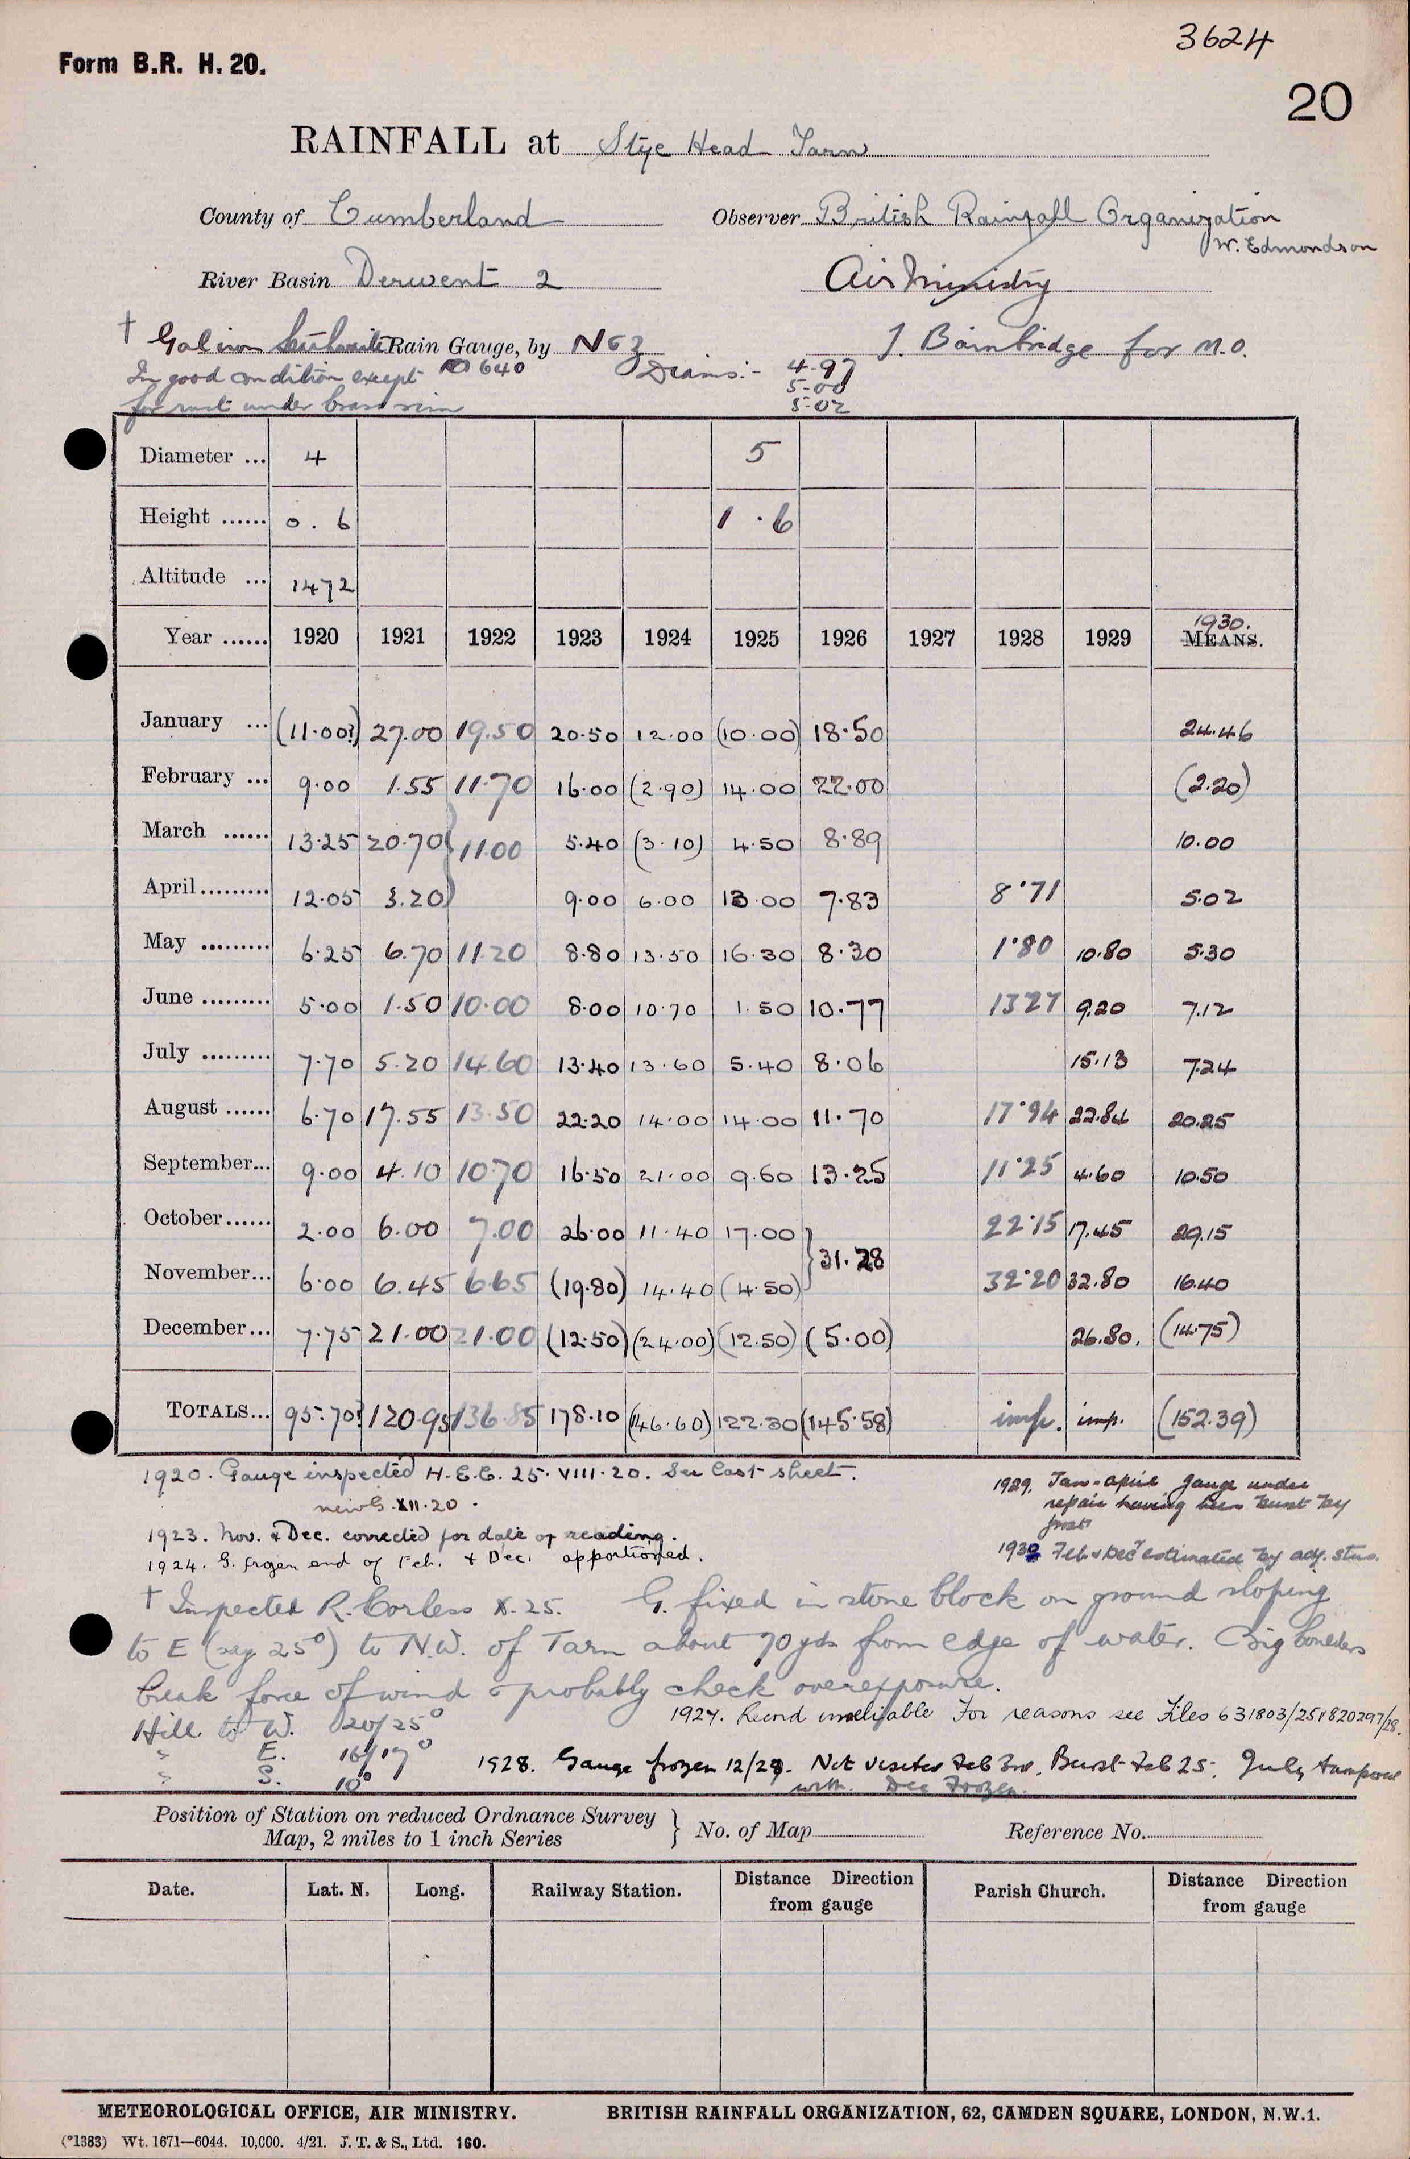 3624
Form B.R. H. 20.
20
RAINFALL at Stye Head Tarn
County of Cumberland Observer British Rainfall Organization
W. Edmondson
River Basin Derwent 2 Air Ministry
† Gal iron Rain Gauge, by NGZ J. Bainbridge for M.O.
In good condition except 640 Diams:- 4.97
5-00
for rust under brass rim 5-02
Diameter ... 4 5
Height ...... 0 . 6 1 . 6
Altitude ... 1472
1930.
Year ...... 1920 1921 1922 1923 1924 1925 1926 1927 1928 1929 MEANS.
January ... (11.00?) 27.00 19.50 20.50 12.00 (10.00) 18.50 24.46
February ... 9.00 1.55 11.70 16.00 (2.90) 14.00 22.00 (2.20)
March ...... 13.25 20.70 11.00 5.40 (3.10) 4.50 8.89 10.00
April ......... 12.05 3.20 9.00 6.00 13.00 7.83 8.71 5.02
May ......... 6.25 6.70 11.20 8.80 13.50 16.30 8.30 1.80 10.80 5.30
June ......... 5.00 1.50 10.00 8.00 10.70 1.50 10.77 13.27 9.20 7.12
July ......... 7.70 5.20 14.60 13.40 13.60 5.40 8.06 15.13 7.24
August ...... 6.70 17.55 13.50 22.20 14.00 14.00 11.70 17.94 22.84 20.25
September... 9.00 4.10 10.70 16.50 21.00 9.60 13.25 11.25 4.60 10.50
October...... 2.00 6.00 7.00 26.00 11.40 17.00 22.15 17.45 29.15
} 31.28
November... 6.00 6.45 6.65 (19.80) 14.40 (4.50) 32.20 32.80 16.40
December... 7.75 21.00 21.00 (12.50) (24.00) (12.50) (5.00) 26.80. (14.75)
TOTALS... 95.70? 120.95 136.85 178.10 (146.60) 122.30 (145.58) imp. imp. (152.39)
1920. Gauge inspected H.E.C. 25. VIII. 20. See last sheet.
new G. XII. 20.
1929. Jan-april gauge under
repair having been burst by
frost
1923. Nov. & Dec. corrected for date of reading.
1924. G. frozen end of Feb. & Dec. apportioned.
1930 Feb & Dec estimated by adj. stns.
† Inspected R. Corless X. 25. G. fixed in stone block on ground sloping
to E (say 25°) to N.W. of Tarn about 70 yds from edge of water. Big boulders
break force of wind & probably check overexposure.
1927. Record unreliable For reasons see Files 631803/25 & 820297/28.
Hill to W. 20/25°
" E. 16/17°
" S. 10°
1928. Gauge frozen 12/27. Not visited Feb 3rd. Burst Feb 25. July tampered
with. Dec Frozen.
Position of Station on reduced Ordnance Survey
Map, 2 miles to 1 inch Series } No. of Map Reference No.
Date. Lat. N. Long. Railway Station. Distance Direction from gauge Parish Church. Distance Direction from gauge
METEOROLOGICAL OFFICE, AIR MINISTRY. BRITISH RAINFALL ORGANIZATION, 62, CAMDEN SQUARE, LONDON, N.W.1.
(*1383) Wt. 1671—6044. 10,000. 4/21. J. T. & S., Ltd. 160.